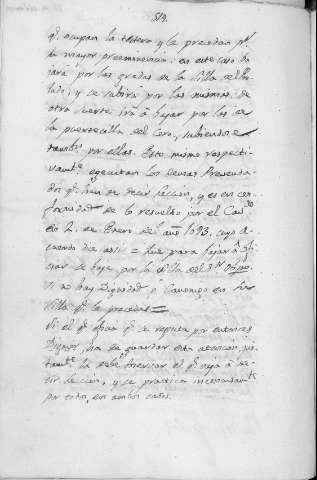 519.
qe. ocupan la testera, y le precedan pr.
su mayor preeminencia: en este caso ba
jará por las gradas de la silla del Pre
lado, y se subirá por las mismas: de
otra suerte irá á bajar por las de
la puertecilla del Coro, subiendose
tambn. por ellas. Esto mismo respecti
vamte. egecutan los demas Prevenda
dos qe. han de decir Leccion, y es en con
formidad de lo resuelto por el Cavdo.
en 2. de Enero del año 1693. cuyo a
cuerdo dice asi = que para bajar á ofi
ciar se baje por la silla del Sr. Obispo,
si no hay Dignidad, o Canonigo en su
silla qe. le preceda =
Si el qe. oficia qe. se reputa por entonces
Digno, ha de guardar esta atencion, jus
tamte. la debe observar el qe. vaja á de
cir Leccion, y se practica inconcusamte.
por todos, en ambos casos.